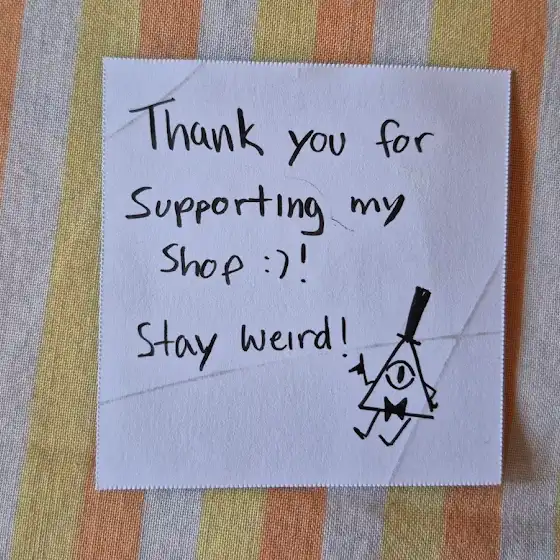 Thank you for
Supporting my
Shop :)!
Stay Weird!